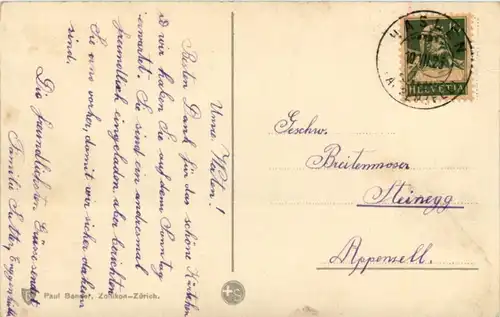 Unne Walen!
Besten Dank für das schöne Kärtchen
wir haben Sie auf dem Sonntag
erwartet. Sie sind ein andresmal
freundlich eingeladen aber berichten
Sie uns vorher, damit wir sicher daheim
sind.
Die freundlichsten Grüsse sendet
Familie Sutter,
HELVETIA
Geschw.
Breitenmoser
Steinegg
Appenzell.
Paul Bender, Zollikon-Zürich.